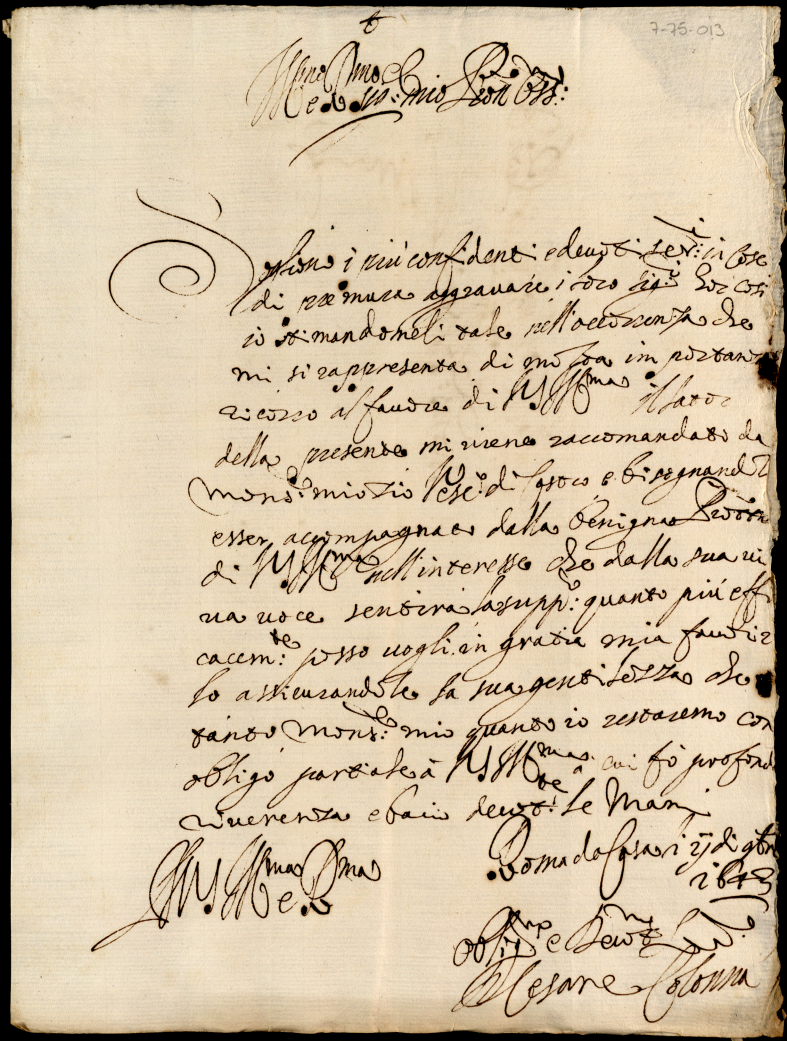 7-75-013
Ill.mo e R.mo Sig.r mio Pron Oss.:
Sogliono i più confidenti e devoti ser.ri: in cose
di premura aggravare i loro Sig.ri
io stimandomeli tale nell'occorrenza che
mi si rappresenta di molta importanza
ricorro al favore di V.S. Ill.ma il lator
della presente mi viene raccomandato da
Mons.r: mio zio Vesc.o: di e bisognandoli
esser accompagnato dalla benigna
di V.S. Ill.ma nell'interesse che dalla sua vi
va voce sentirà la supp.co: quanto più effi
cacem.te: posso vogli in gratia mia favorir
lo assicurandole la sua gentilezza che
tanto Mons.r: mio quanto io restaremo con
obligo partiale à V.S. Ill.ma cui fò profond
riverenza e bacio devot.te: le Mani
Roma da Casa i di 9bre
1643
V.S. Ill.ma e R.ma
Oblig.mo e Devot.mo Ser.
Cesare Colonna